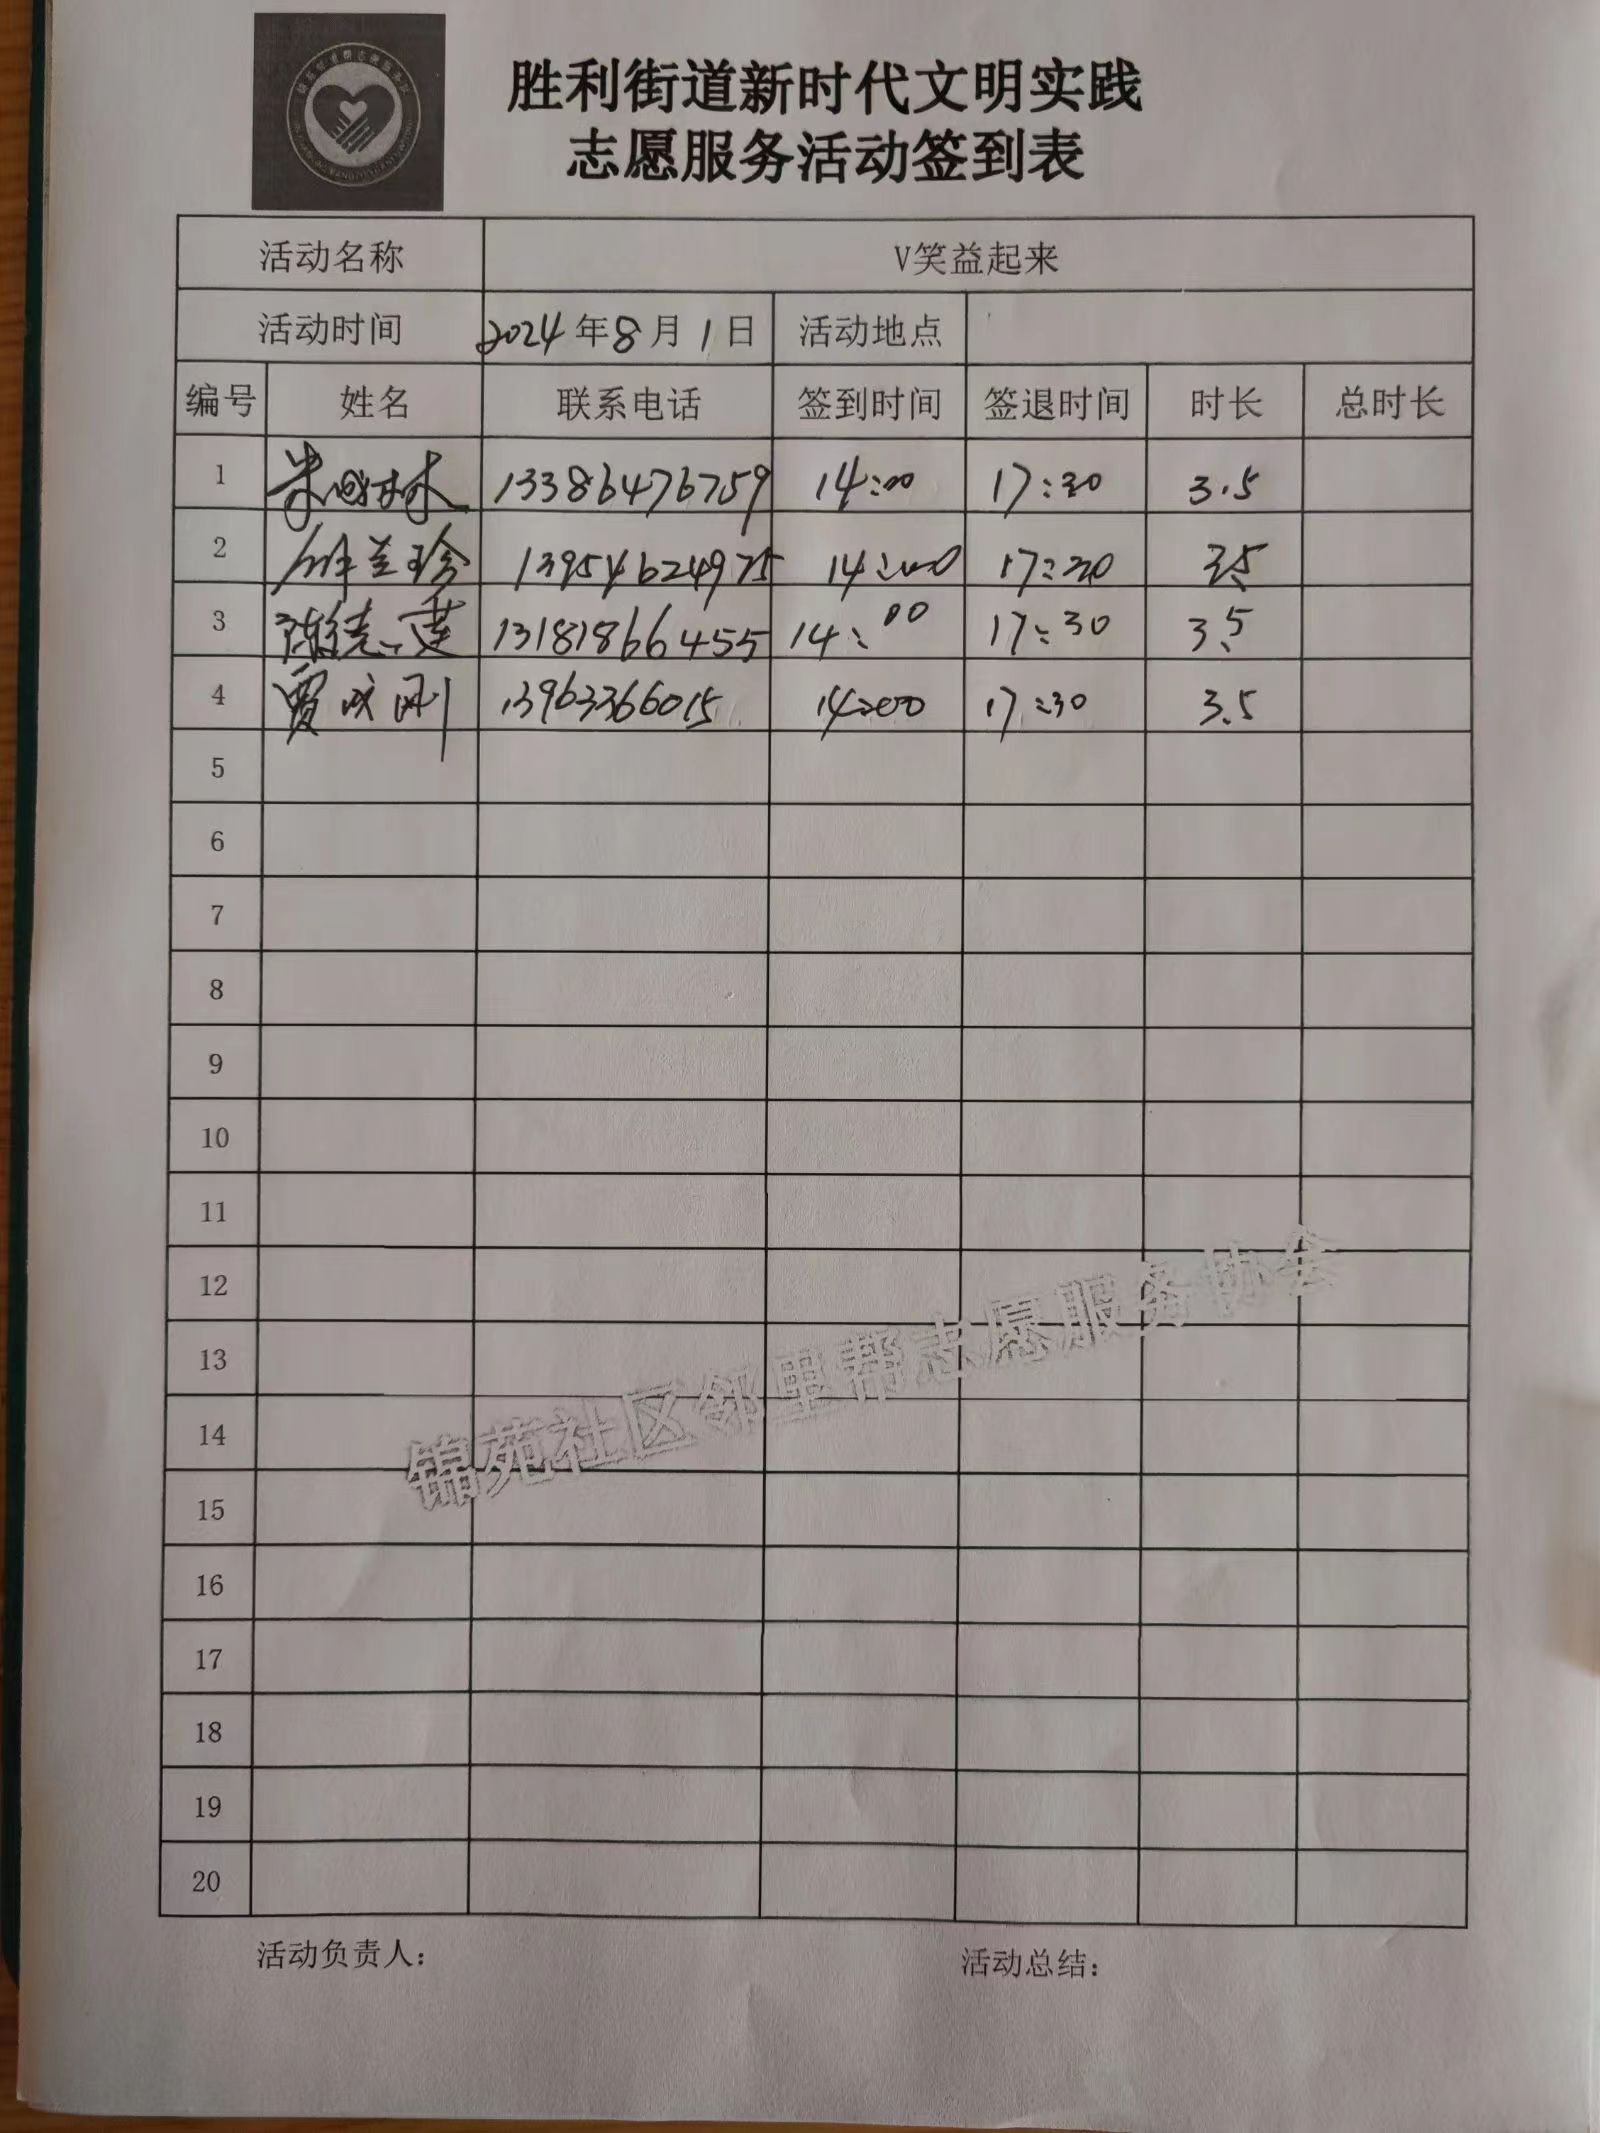 胜利街道新时代文明实践
志愿服务活动签到表
活动名称 V笑益起来
活动时间 2024年8月1日 活动地点
编号 姓名 联系电话 签到时间 签退时间 时长 总时长
1 13386476759 14:00 17:30 3.5
2 兰珍 13954624975 14:00 17:30 3.5
3 莲 13181866455 14:00 17:30 3.5
4 贾庆刚 13963366015 14:00 17:30 3.5
5
6
7
8
9
10
11
12
13
14
15
16
17
18
19
20
锦苑社区邻里帮志愿服务协会
活动负责人: 活动总结: